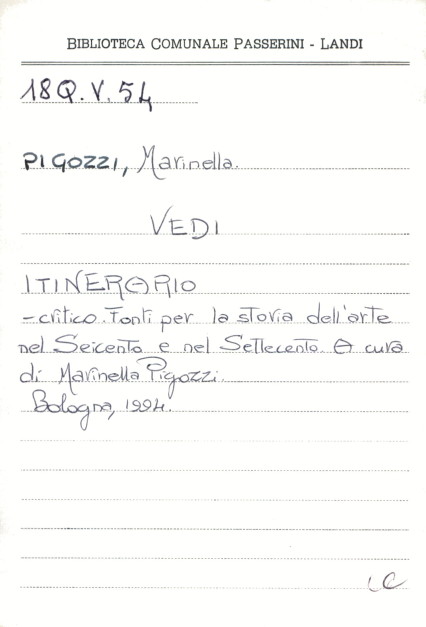 BIBLIOTECA COMUNALE PASSERINI - LANDI
18Q.V.54
PIGOZZI, Marinella.
VEDI
ITINERARIO
- critico. Fonti per la storia dell'arte
nel Seicento e nel Settecento. A cura
di Marinella Pigozzi.
Bologna, 1994.